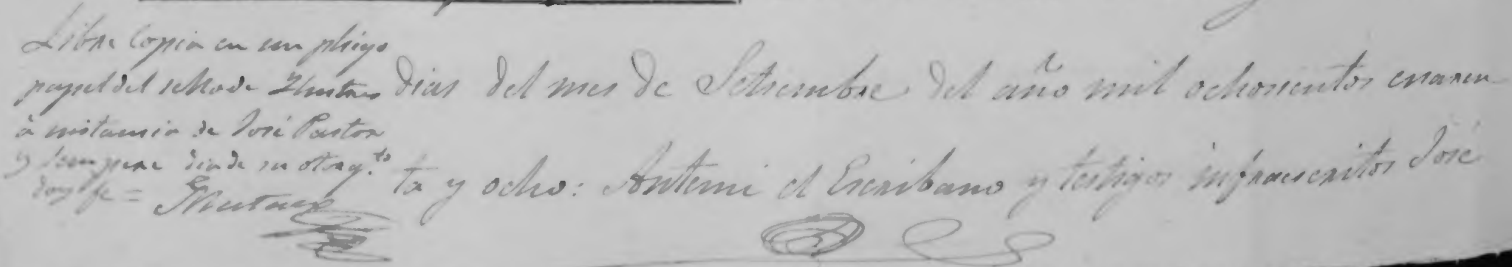 Libre Copia en un pliego
papel del sello de Ilustres
à instancia de José Pastor
y Sempere dia de su otorg.to
doy fe =
dias del mes de Setiembre del año mil ochosientos cuaren
ta y ocho: Antemi el Escribano y testigos infraescritos José